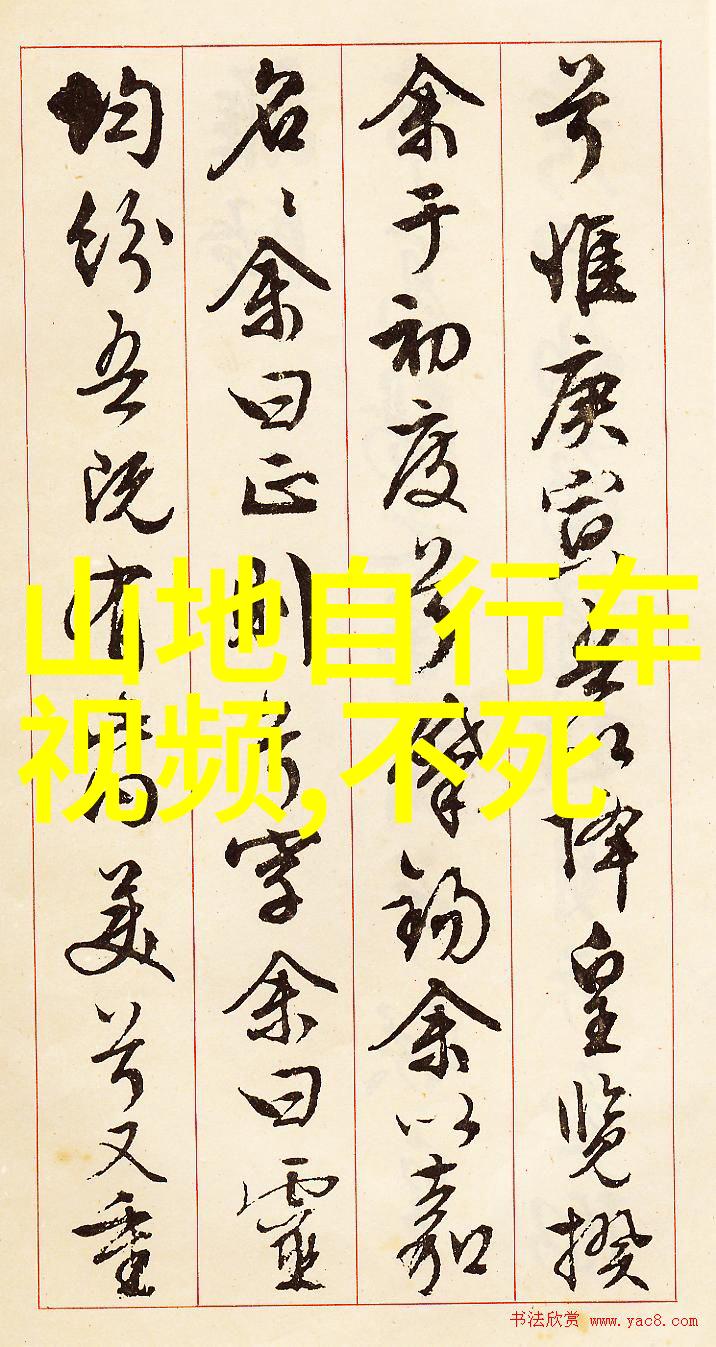 兮惟庚寅吾以降皇覽揆
余于初度兮肇錫余以嘉
名〻余曰正則兮字余曰靈
均紛吾既有此内美兮又重
山地自行车
视频,不死
书法欣赏 www.yac8.com